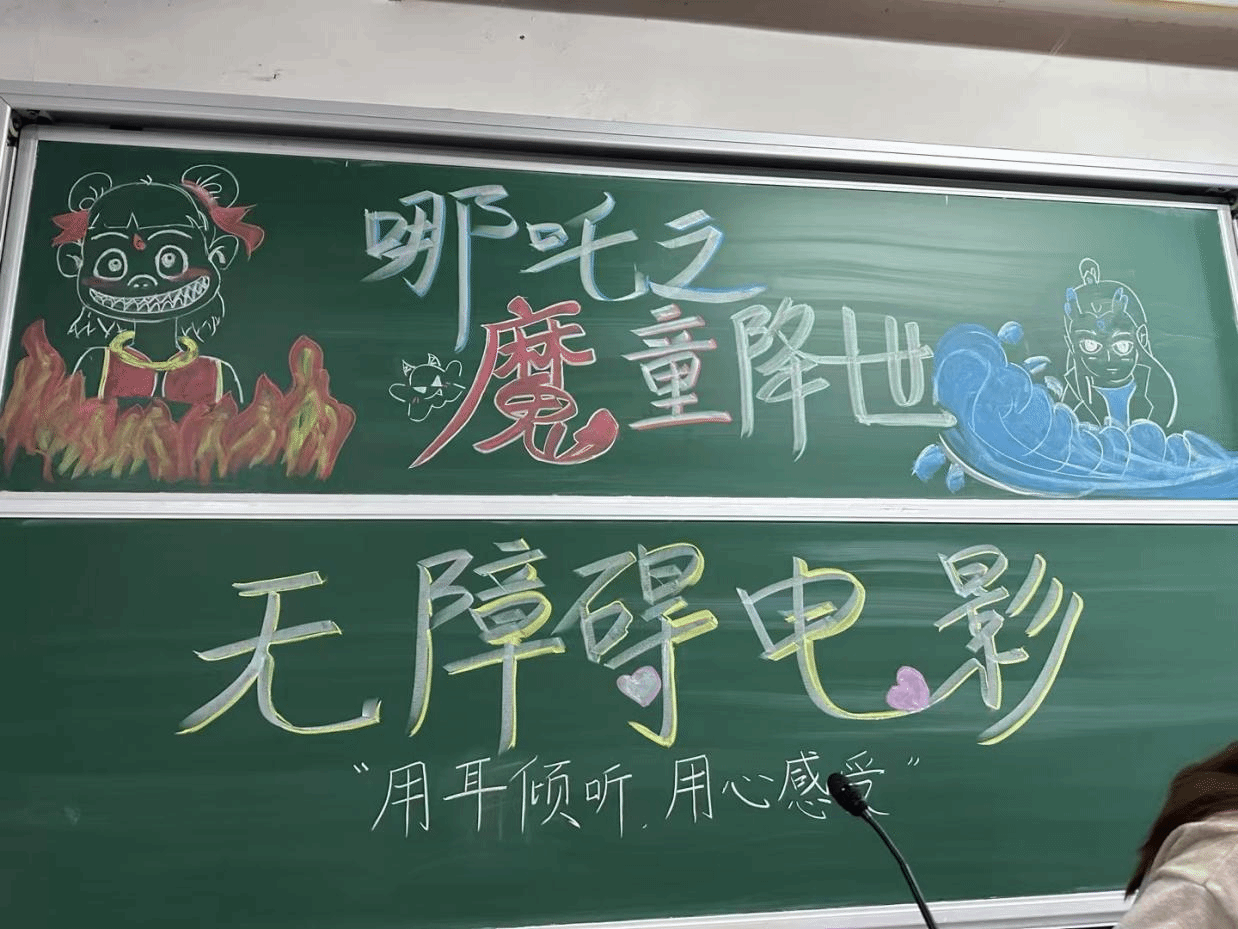 哪吒之
魔童降世
无障碍电影
“用耳倾听,用心感受”